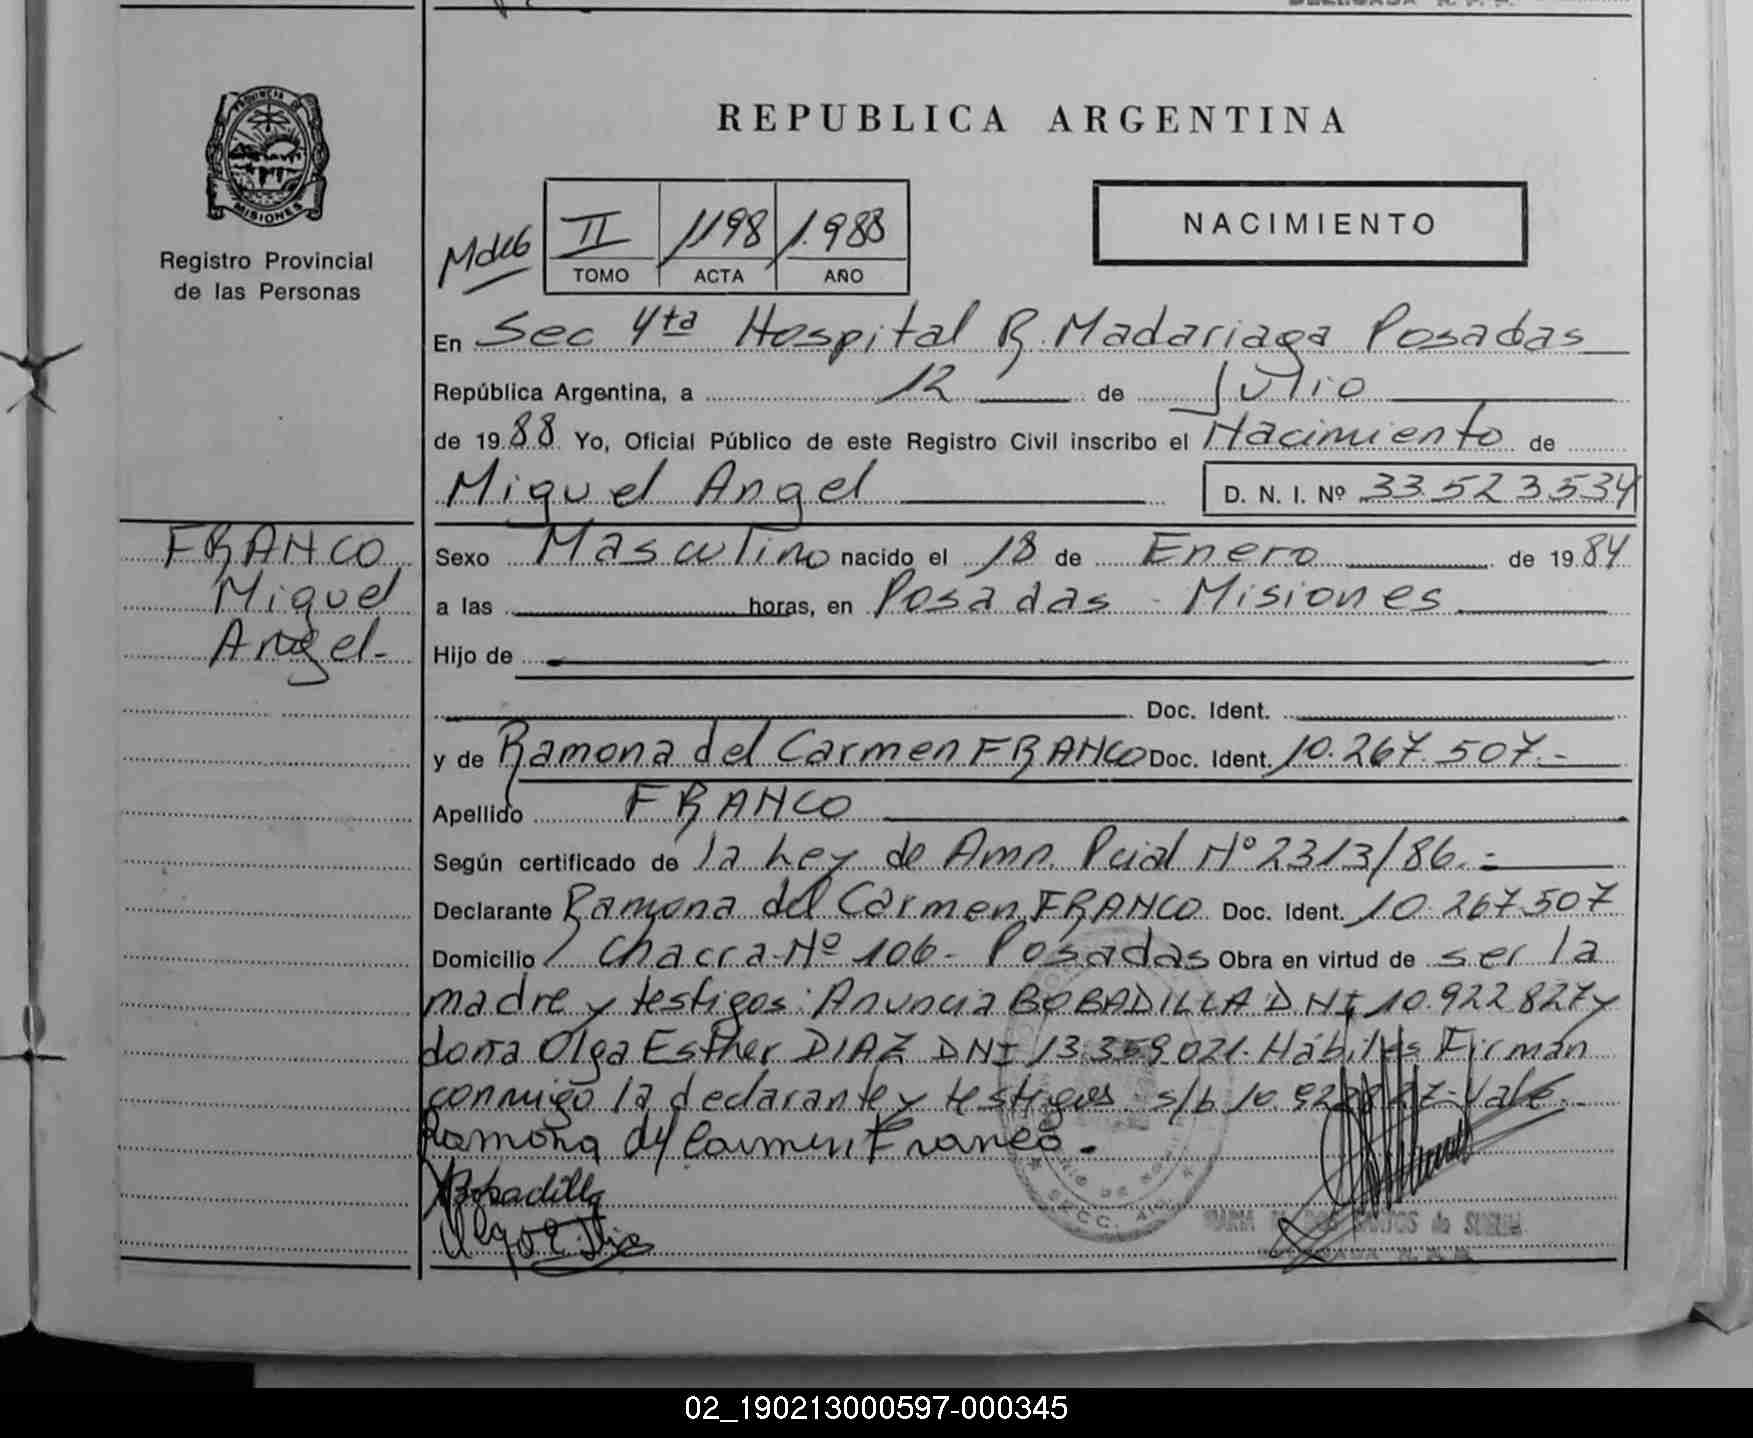 PROVINCIA DE
MISIONES
Registro Provincial
de las Personas
REPUBLICA ARGENTINA
II 1198 1.988
TOMO ACTA AÑO
NACIMIENTO
En Sec 4ta Hospital R. Madariaga Posadas
República Argentina, a 12 de Julio
de 1988 Yo, Oficial Público de este Registro Civil inscribo el Nacimiento de
Miguel Angel D. N. I. Nº 33.523.534
FRANCO
Miguel
Angel.-
Sexo Masculino nacido el 18 de Enero de 1984
a las horas, en Posadas - Misiones
Hijo de
Doc. Ident.
y de Ramona del Carmen FRANCO Doc. Ident. 10.267.507.-
Apellido FRANCO
Según certificado de la Ley de Amn. Pcial Nº 2313/86.=
Declarante Ramona del Carmen FRANCO Doc. Ident. 10.267.507
Domicilio Chacra Nº 106 - Posadas Obra en virtud de ser la
madre y testigos: Anuncia BOBADILLA DNI 10.922.827 y
doña Olga Esther DIAZ DNI 13.359.021. Hábiles Firman
conmigo la declarante y testigos s/b 10.922.827 - Vale.-
Ramona del Carmen Franco.
Bobadilla
Olga E. Diaz
SECC. 4ta
02_190213000597-000345